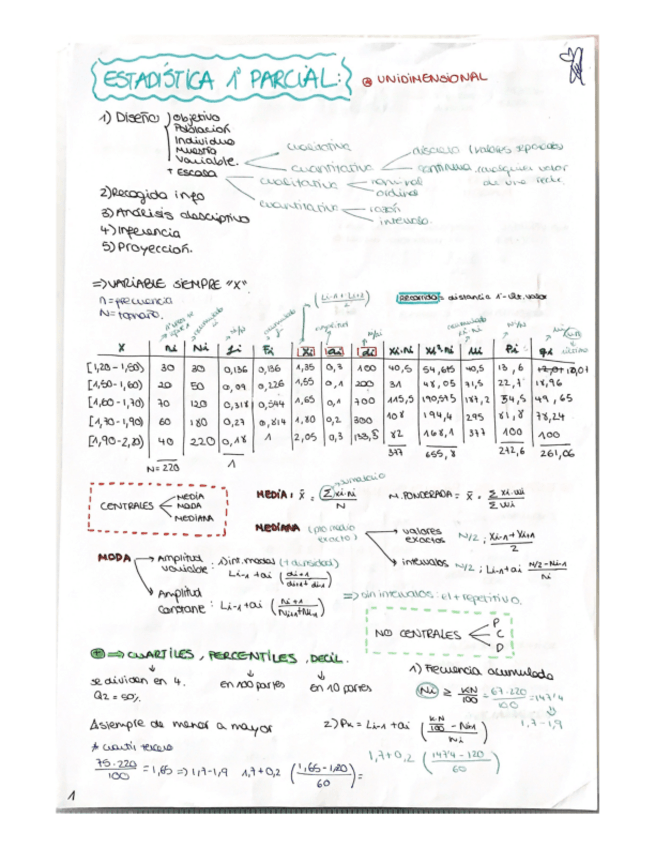 ESTADÍSTICA 1º PARCIAL:
UNIDIMENSIONAL
1) Diseño
objetivo
Población
Individuo
Muestra
Variable
+ Escala
cualitativa
cuantitativa
discreta (valores separados)
continua cualquier valor
cualitativa
nominal
ordinal
cuantitativa
razón
intervalo.
2) Recogida info
3) Análisis descriptivo
4) Inferencia
5) Proyección.
=> VARIABLE SIEMPRE "X"
n = frecuencia
N = tamaño.
Recorrido = distancia 1º-últ. valor
X ni Ni fi Fi Xi ai di Xi·ni Xi²·ni ui Pi qi
[1,20-1,50) 30 30 0,136 0,136 1,35 0,3 100 40,5 54,675 40,5 13,6
[1,50-1,60) 20 50 0,09 0,226 1,55 0,1 200 31 48,05 71,5 22,7 18,96
[1,60-1,70) 70 120 0,318 0,544 1,65 0,1 700 115,5 190,575 187 54,5 49,65
[1,70-1,90) 60 180 0,27 0,814 1,80 0,2 300 108 194,4 295 81,8 78,24
[1,90-2,20) 40 220 0,18 1 2,05 0,3 133,3 82 168,1 377 100 100
N=220 1 377 655,8 272,6 261,06
CENTRALES
MEDIA
MODA
MEDIANA
MEDIA: x̄ = Σxi·ni / N
sumatorio
M. PONDERADA = x̄ = Σ xi·wi / Σ wi
MEDIANA (promedio exacto)
valores exactos N/2 ; Xi-1 + Xi+1 / 2
intervalos N/2 ; Li-1 + ai N/2 - Ni-1 / Ni
MODA
Amplitud variable : Li-1 + ai ( di+1 / di+1 + di-1 )
(+ densidad)
Amplitud constante : Li-1 + ai ( ni+1 / ni+1 + ni-1 )
=> sin intervalos: el + repetitivo.
NO CENTRALES
P
C
D
=> CUARTILES, PERCENTILES, DECIL.
se dividen en 4.
Q2 = 50%
en 100 partes
en 10 partes
1) Frecuencia acumulada
Ni ≥ KN / 100 = 67·220 / 100 = 147'4
1,7-1,9
siempre de menor a mayor
2) Pk = Li-1 + ai ( k·N / 100 - Ni-1 / ni )
1,7 + 0,2 ( 147'4 - 120 / 60 )
* cuartil tercero
75·220 / 100 = 1,65 => 1,7-1,9 1,7 + 0,2 ( 1,65 - 120 / 60 ) =
1